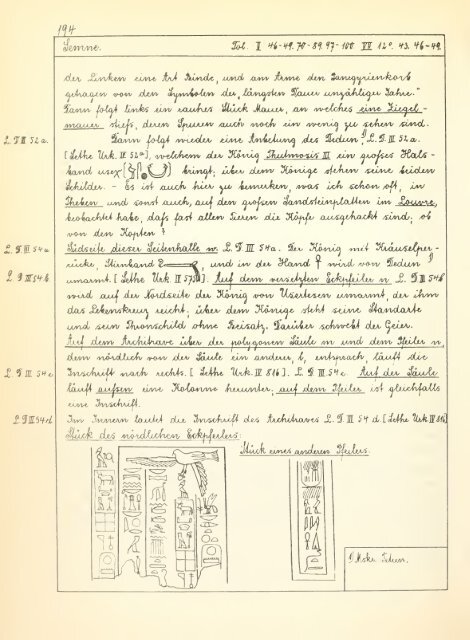 194
Semne.
Fol. II 46-49. 70-89. 97-100 VII 12°. 43. 46-49.
der Linken eine Art Binde, und am Arme den Panegyrienkorb
getragen von den Symbolen der „längsten Dauer unzähliger Jahre.“
Dann folgt links ein rauhes Stück Mauer, an welches eine Ziegel-
mauer stiefs, deren Spuren auch noch ein wenig zu sehen sind.
L. D. III 52a.
Dann folgt wieder eine Anbetung des Dedun¹⁾, L. D. III 52a.
[Sethe Urk. IV], welchem der König Thutmosis III ein grofses Hals-
band usex bringt; über dem Könige stehen seine beiden
Schilder. – Es ist auch hier zu bemerken, was ich schon oft, in
Theben und sonst auch, auf den grofsen Sandsteinplatten im Louvre,
beobachtet habe, dafs fast allen Tieren die Köpfe ausgehackt sind, ob
von den Kopten?
L. D. III 54a
Südseite dieser Seitenhalle w. L. D. III 54a. Der König mit Kräuselper-
rücke, Stirnband und in der Hand wird von Dedun¹⁾
L. D. III 54b
umarmt. [Sethe Urk. II 575]. Auf dem versetzten Eckpfeiler n L. D. III 54b
wird auf der Nordseite der König von Usertesen umarmt, der ihm
das Lebenskreuz reicht, über dem Könige steht seine Standarte
und sein Thronschild ohne Beisatz. Darüber schwebt der Geier.
Auf dem Architrave über der polygonen Säule m und dem Pfeiler n,
dem nördlich von der Säule ein anderer, b, entsprach, läuft die
L. D. III 54c
Inschrift nach rechts. [Sethe Urk. IV 816]. L. D. III 54c. Auf der Säule
läuft aufsen eine Kolonne herunter, auf dem Pfeiler ist gleichfalls
eine Inschrift.
L. D. III 54d
Im Innern lautet die Inschrift des Architraves L. D. III 54 d [Sethe Urk. IV 816]
Stück des nördlichen Eckpfeilers:
Stück eines anderen Pfeilers.
¹⁾ Mskr. Tetun.